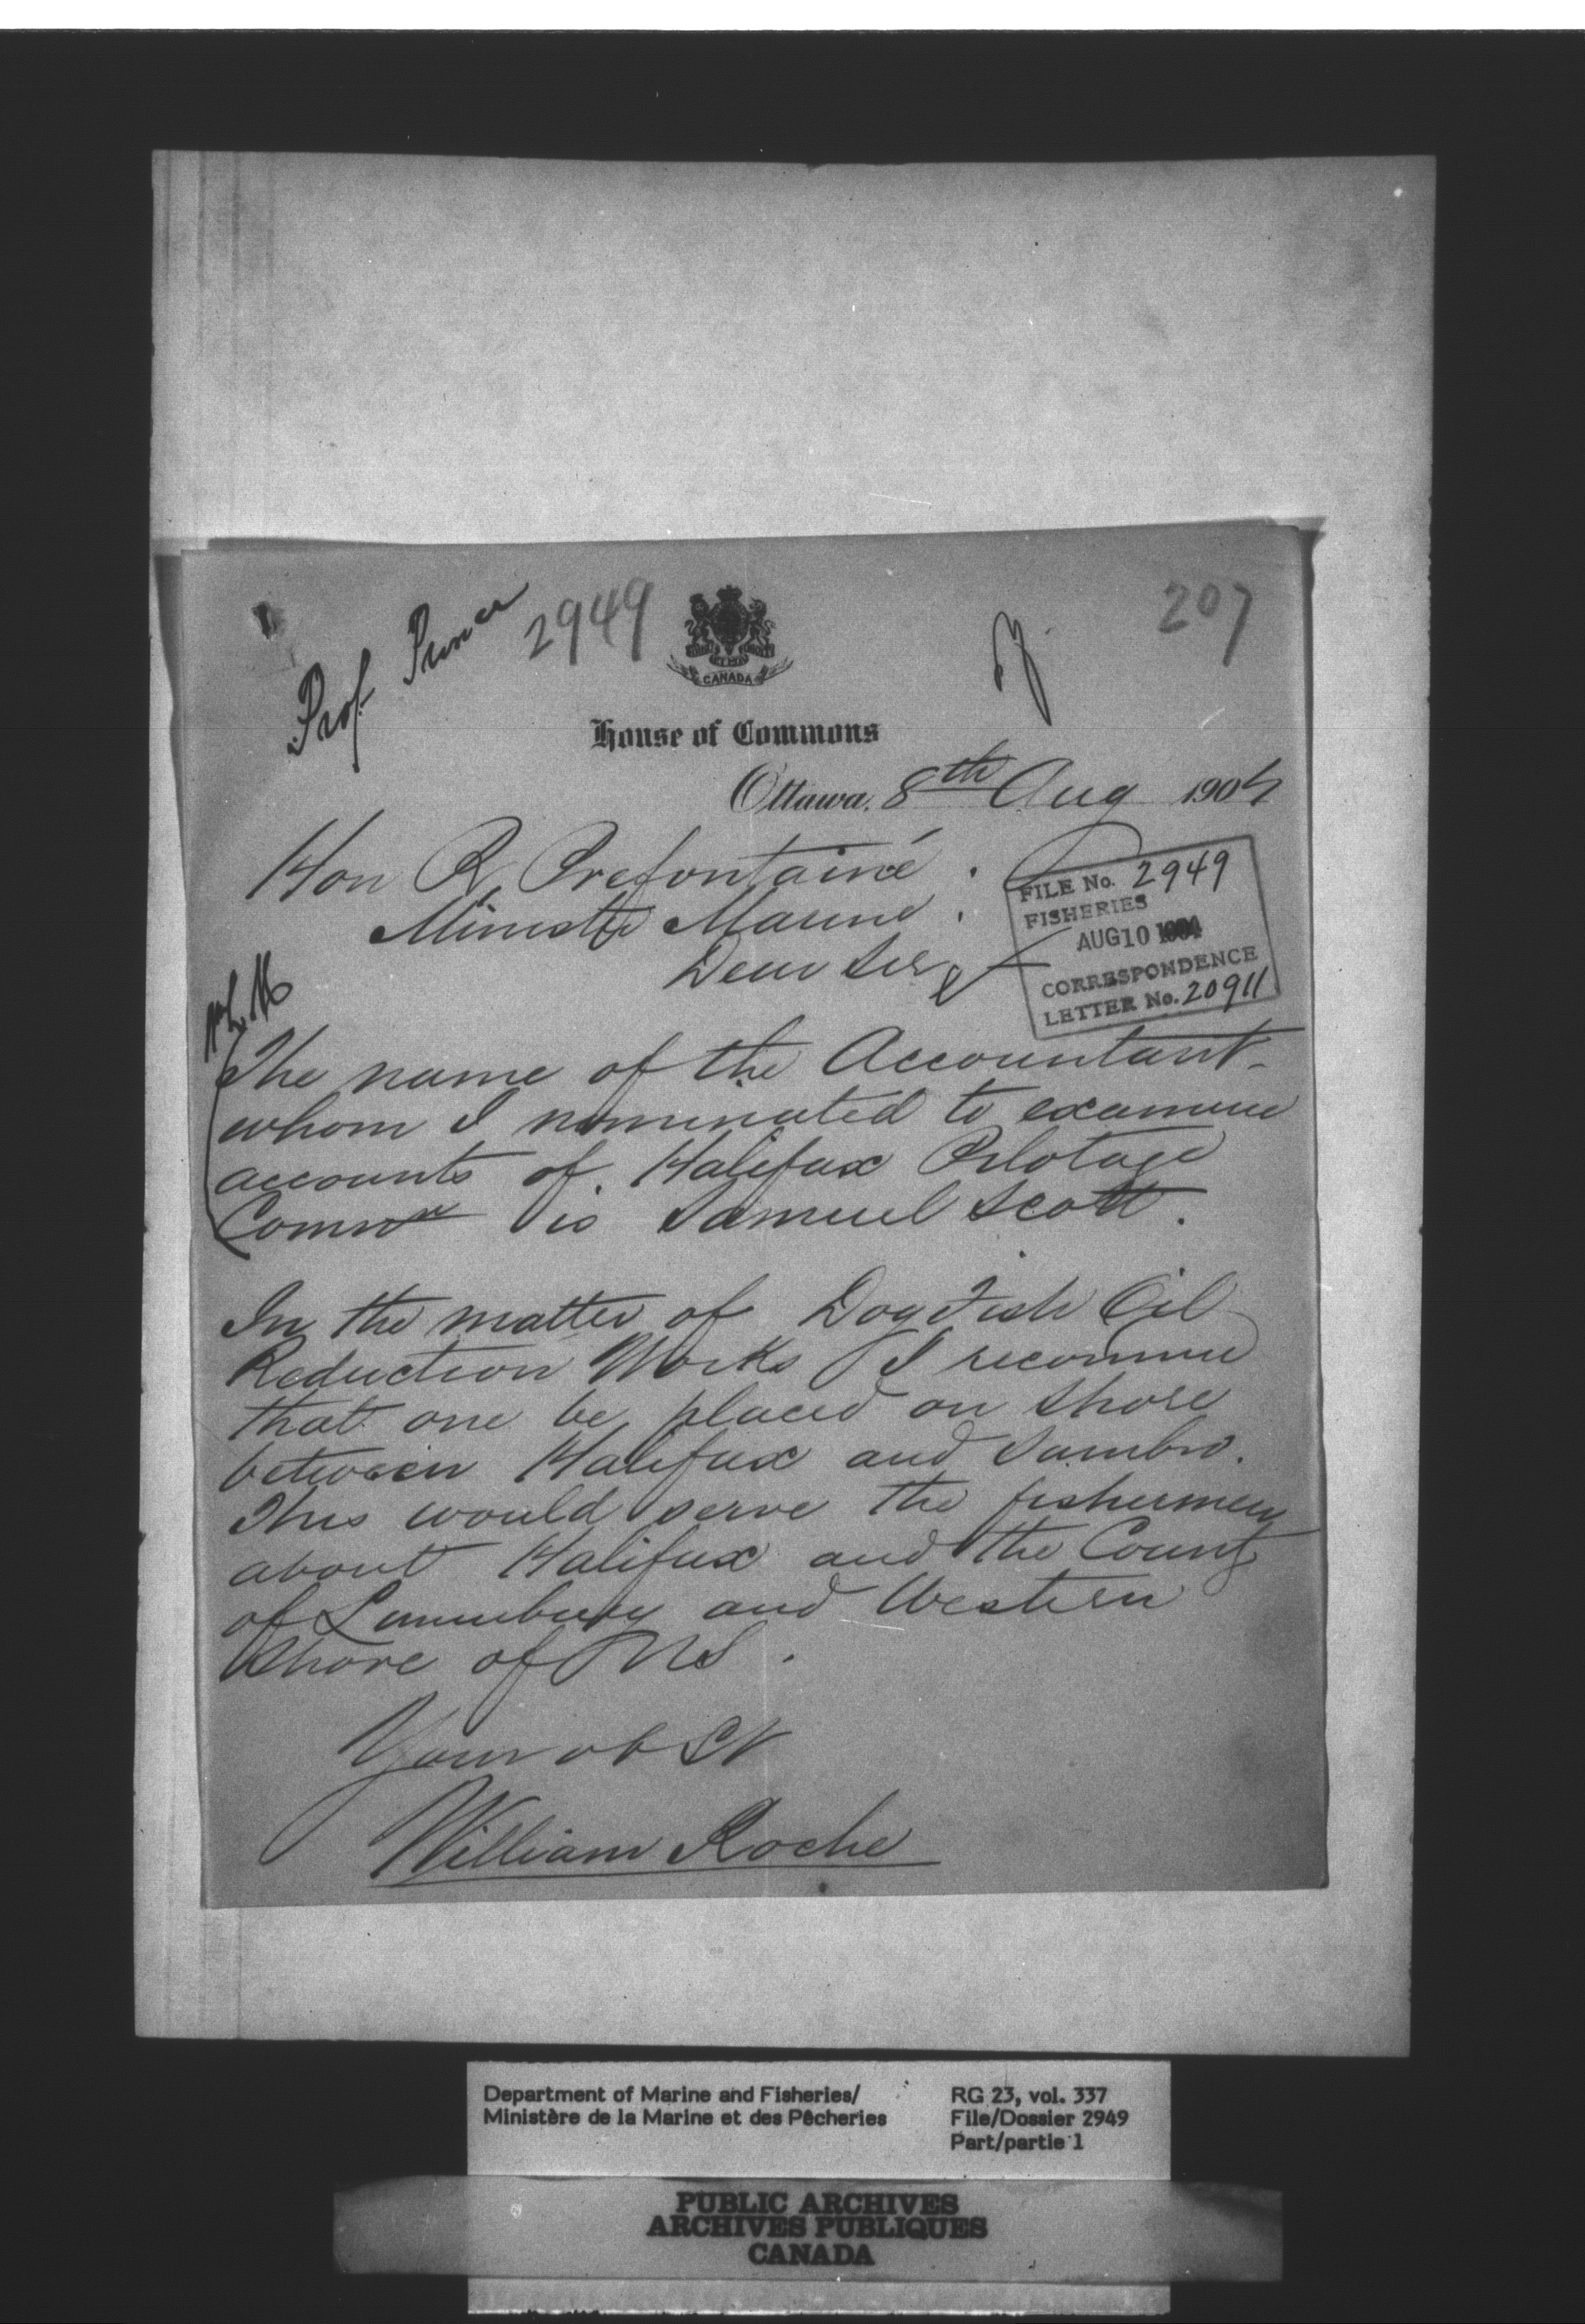 Prof. Prince
2949
207
CANADA
House of Commons
Ottawa, 8th Aug 1904
Hon R, Prefontaine
Minister Marine
FILE No. 2949
FISHERIES
AUG 10 1904
CORRESPONDENCE
LETTER No. 20911
Dear Sir,
The name of the Accountant
whom I nominated to examine
accounts of Halifax Pilotage
is Samuel Scott.
In the matter of Dog Fish Oil
Reduction Works I recommend
that one be placed on shore
between Halifax and Sambro.
This would serve the fishermen
about Halifax and the County
of Lunenburg and Western
Shore of NS.
Your obt
William Roche
Department of Marine and Fisheries/
Ministère de la Marine et des Pêcheries
RG 23, vol. 337
File/Dossier 2949
Part/partie 1
PUBLIC ARCHIVES
ARCHIVES PUBLIQUES
CANADA